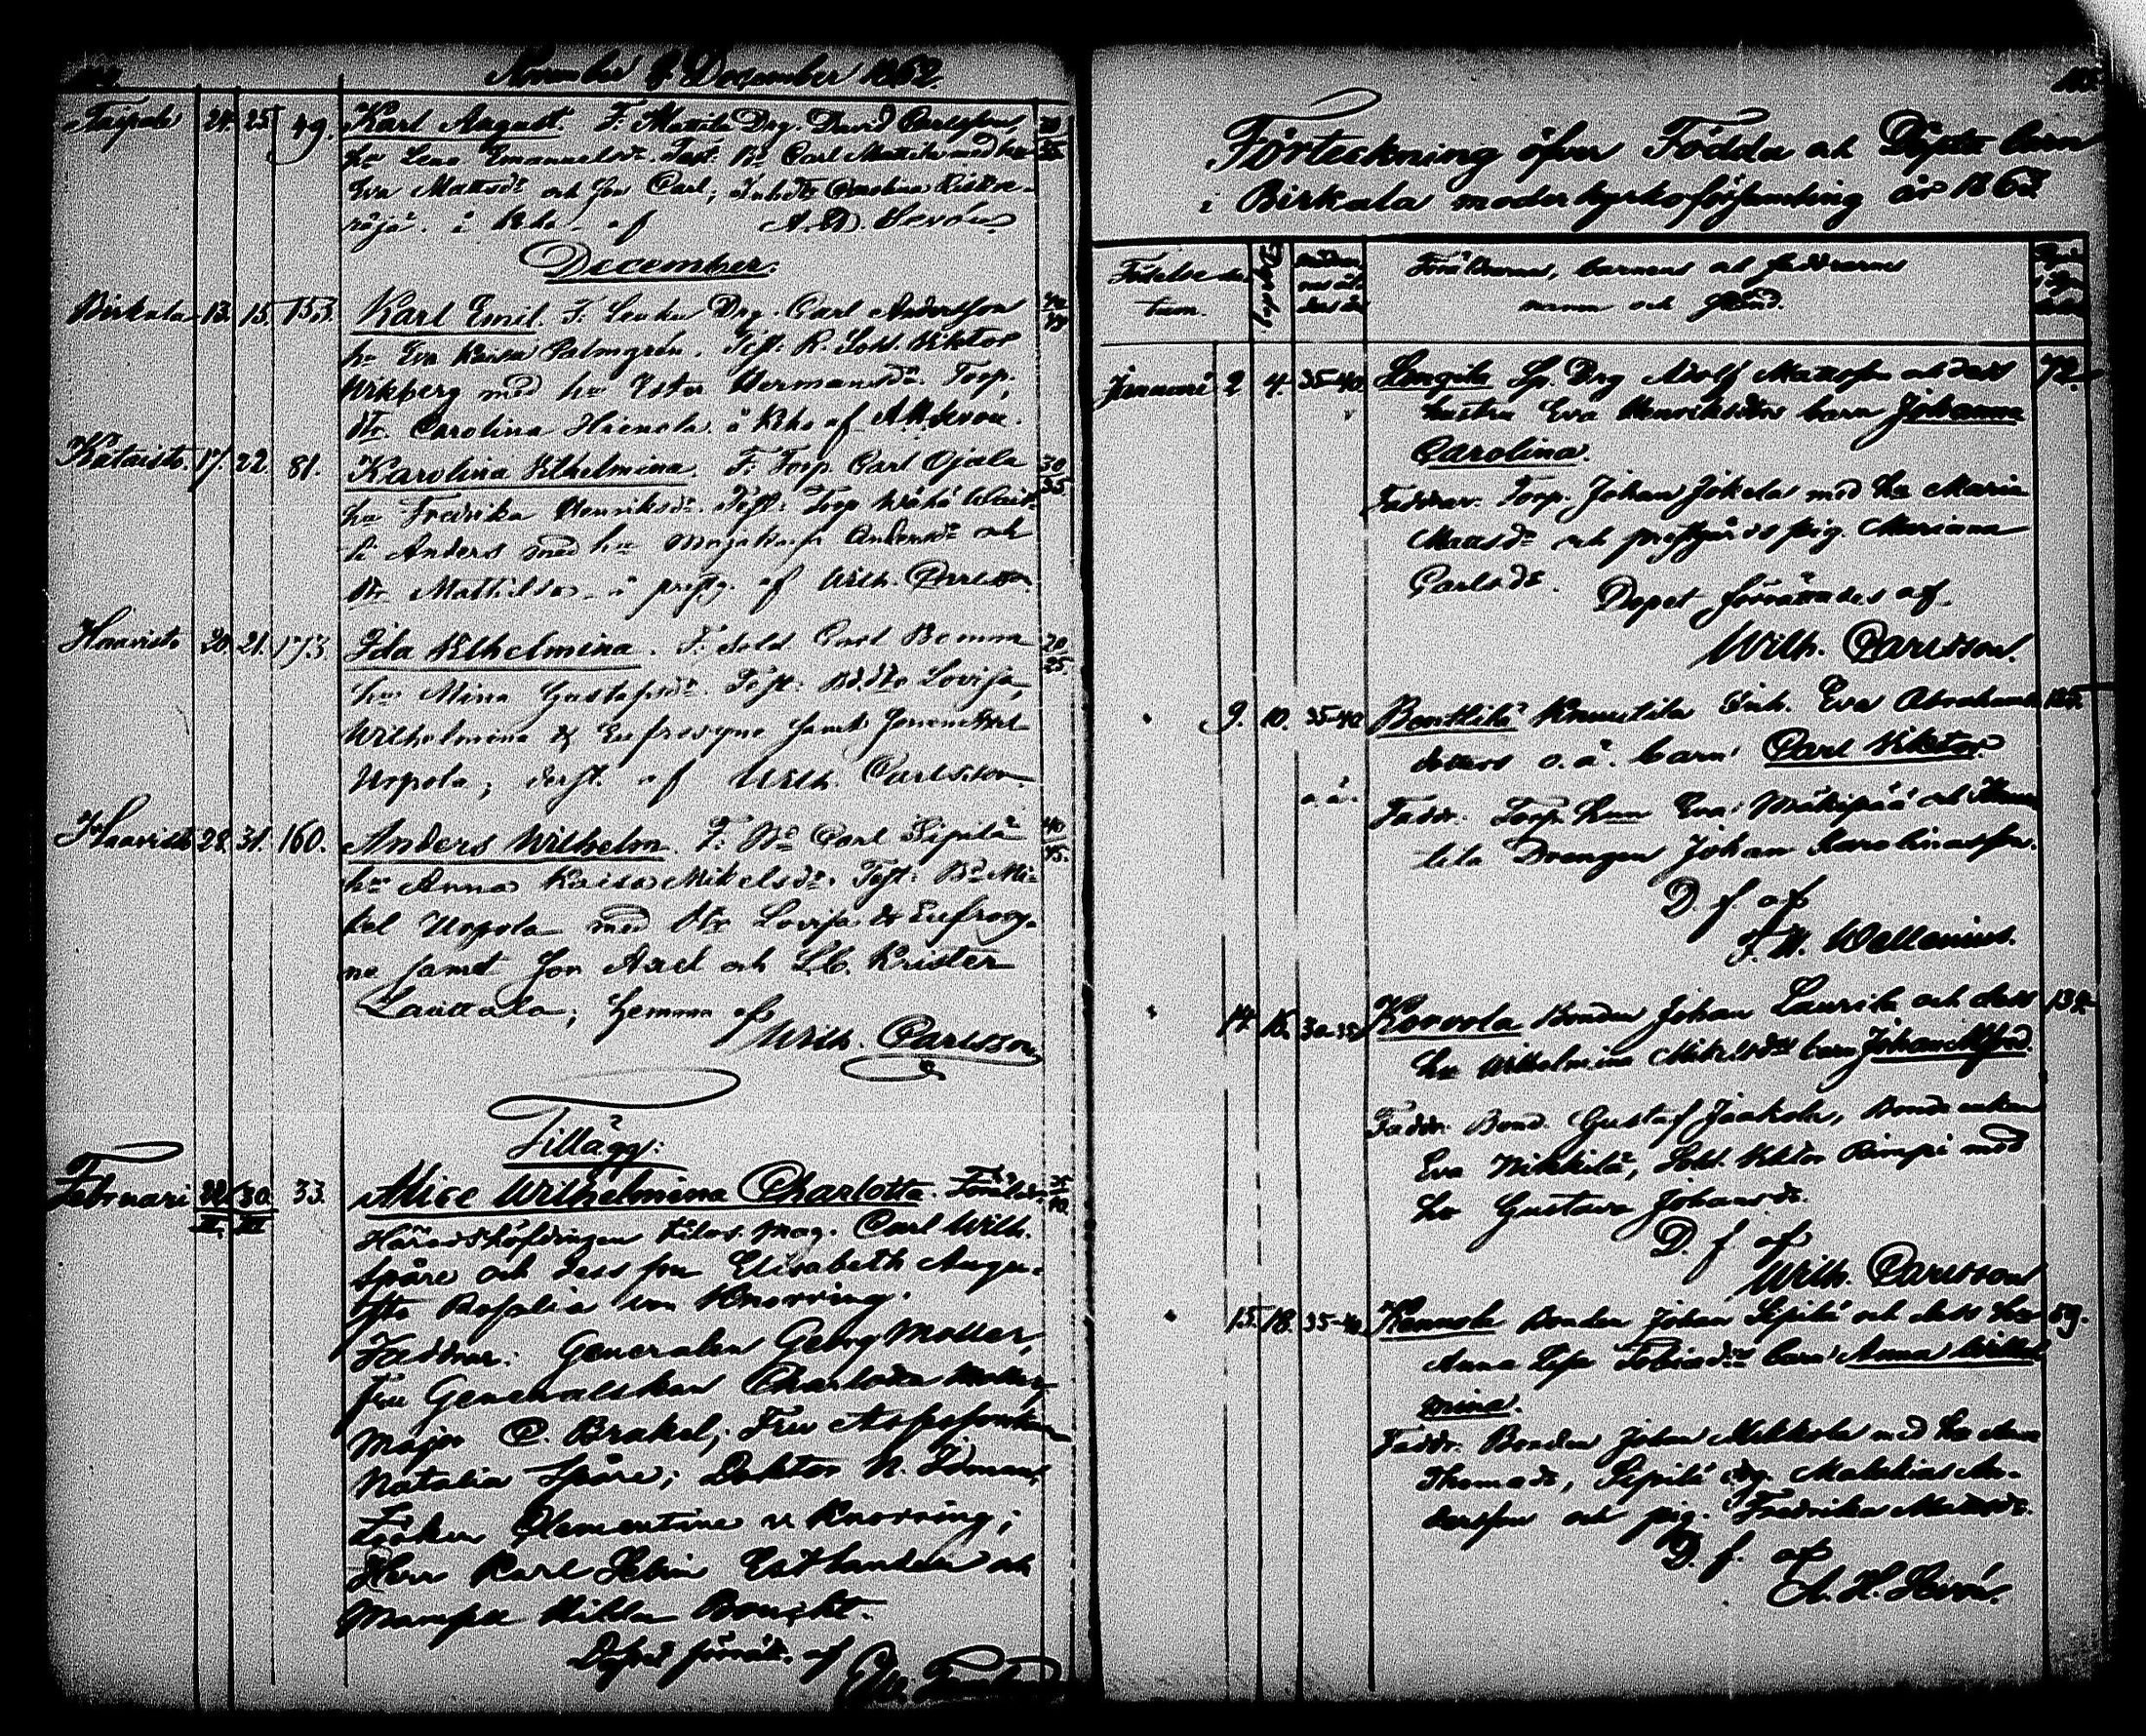 November & December 1862.
Taipale 24. 25. 49. Karl August. F. Mattila Drg. David Carlsson,
hu Lena Emanuelsdr. Test. Bd Carl Mattila med hu
Eva Mattsdr och son Carl; Inh. dr Carolina
i Kirko. af A. H. Sirén.
December.
Birkala 13. 15. 153. Karl Emil. F. Drg. Carl Andersson
hu Eva Kaisa Palmgrén. Test: R. Sold. Viktor
Wikberg med hu Ester Hermansdr. Torp.
dr. Carolina å Kirko af A. H. Sirén.
17. 22. 81. Karolina Vilhelmina. F. Torp. Carl Ojala 30/35
hu Fredrika Henriksdr. Test: Torp Wähä
Anders med hu Maja Kaisa Andersdr och
dr Mathilda å prestg. af Wilh. Carlsson.
Haavisto 20. 21. 173. Ida Vilhelmina. F. Sold Carl Bomma 20/25.
hu Mina Gustafsdr. Test: Bd. dr Lovisa,
Wilhelmina & Eufrosyne samt
Uopola; af Wilh. Carlsson
Haavisto 28. 31. 160. Anders Wilhelm. F. Bd Carl Sipilä 40/45.
hu Anna Kaisa Mikelsdr. Test: Bd Mi-
kel Uopola med dr Lovisa & Eufrosy-
ne samt son Axel och Krister
Lauttala; hemma af
Wilh. Carlsson
Tillägg:
Februari 22/II. 30/III 33. Alice Wilhelmina Charlotta. Föräldr.
Häradshöfdingen Filos. Mag. Carl Wilh.
Spåre och dess fru Elisabeth Augu-
sta Rosalia von Knorring.
Faddrar: Generalen Georg Moller,
Fru Generalskan Charlotta Moller,
Major C. Brakel; Fru Assessorskan
Natalia Spåre; Doktor N. Idman;
Fröken Clementine v. Knorring;
Herr Karl Estlander och
Mamsell Hilda
Dopet förrätt. af
Förteckning öfver Födda och Döpta barn
i Birkala moderkyrkoförsamling år 1863.
Födelse da-
tum. Dopdag. Föräldrarnes, barnens och faddrarnes
namn och stånd.
Januari 2. 4. 35-40. Lp. Drg Adolf Mattsson och dess 72.
hustru Eva Henriksdrs barn Johanna
Carolina.
Faddrar. Torp. Johan Jokela med hu Maria
Mattsdr och prestgårds pig. Mariana
Carlsdr. Dopet förrättades af
Wilh. Carlsson.
9. 10. 35-40 Penttilä Knuutila Inh. Eva Abrahams-
dotters o. ä. barn Carl Viktor.
o. ä. Faddr. Torp. hun Eva Mäkipää och
tila Drengen Johan Karolinasson.
D. f. af
F. W. Wallenius.
14. 16. 30-35 Korvola Bonden Johan Laurila och dess
hu Wilhelmina Mikelsdrs barn Johan Alfred.
Faddr. Bond. Gustaf Jaakola, Bonde enkan
Eva Nikkilä, Sold. Viktor Rimpi med
hu Gustava Johansdr.
D. f. af
Wilh. Carlsson
15. 18. 35-40 Bonden Johan Sipilä och dess hus 59.
Anna Lisa Tobiasdrs barn Anna Wilhel
mina.
Faddr. Bonden Johan Mikkola med hu Anna
Thomasdr, Sipilä drg. Malakias An-
dersson och pig. Fredrika Mattsdr.
D. f. af
A. H. Sirén.